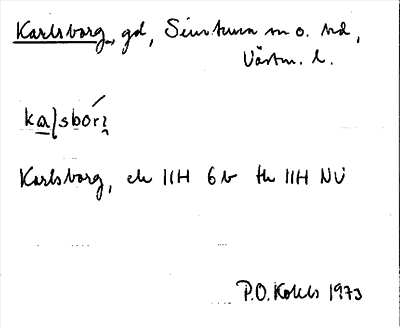 Karlsborg, gd, Simtuna sn o. hd,
Västm. l.
Karlsborg, ek 11H 6b tk 11H NV
P.O. 1973